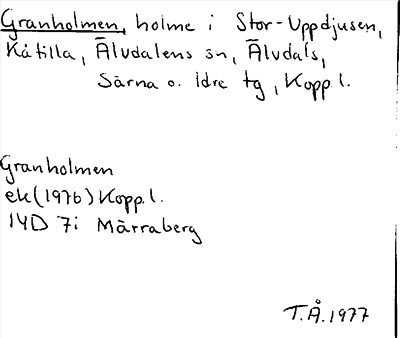 Granholmen, holme i Stor-Uppdjusen,
Kåtilla, Älvdalens sn, Älvdals,
Särna o. Idre tg, Kopp.l.
Granholmen
ek(1976) Kopp.l.
14D 7i Märraberg
T.Å.1977